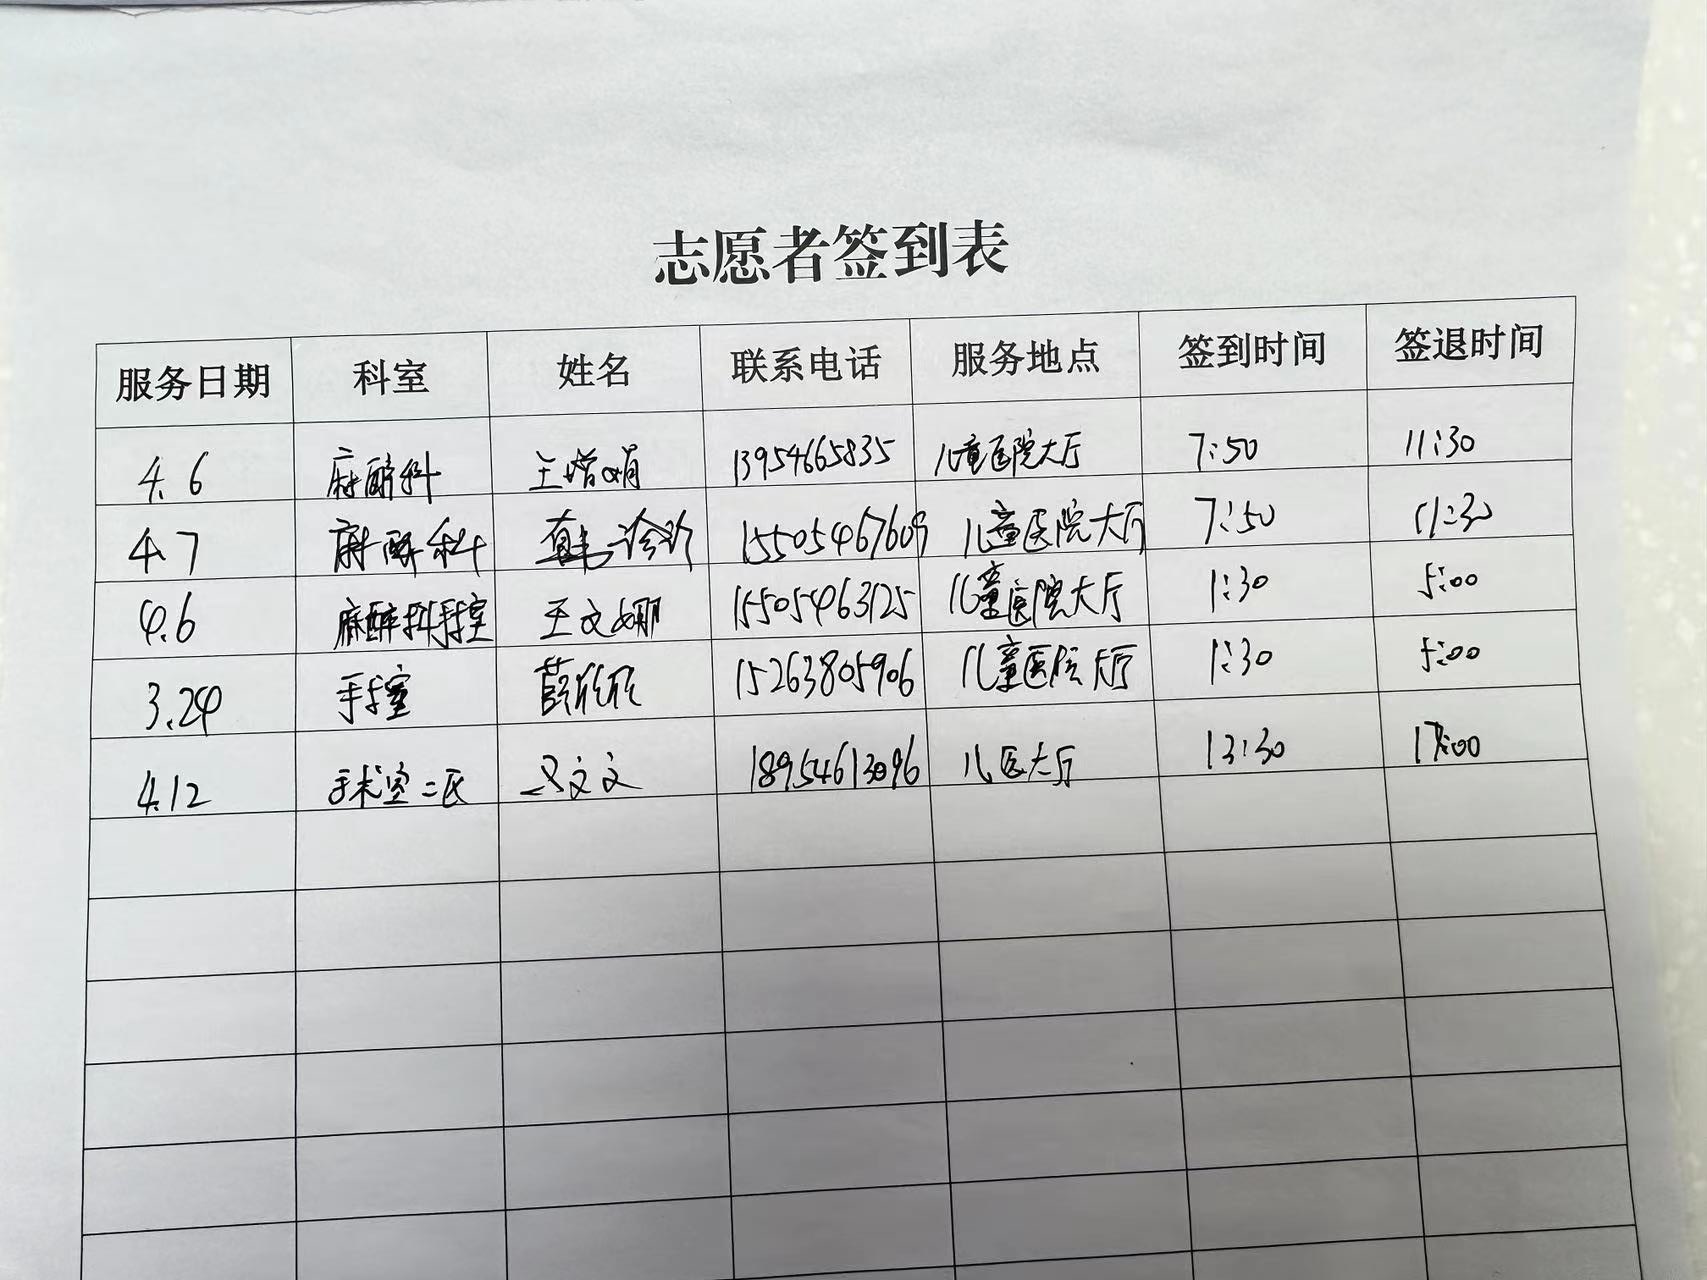 志愿者签到表
服务日期 科室 姓名 联系电话 服务地点 签到时间 签退时间
4.6 麻醉科 王增娟 13954665835 儿童医院大厅 7:50 11:30
4.7 麻醉科 15505467609 儿童医院大厅 7:50 11:30
4.6 麻醉科手室 王文娜 15505463125 儿童医院大厅 1:30 5:00
3.24 手室 薛欣欣 15263805906 儿童医院大厅 1:30 5:00
4.12 手术室二区 文文 18954613096 儿医大厅 13:30 17:00